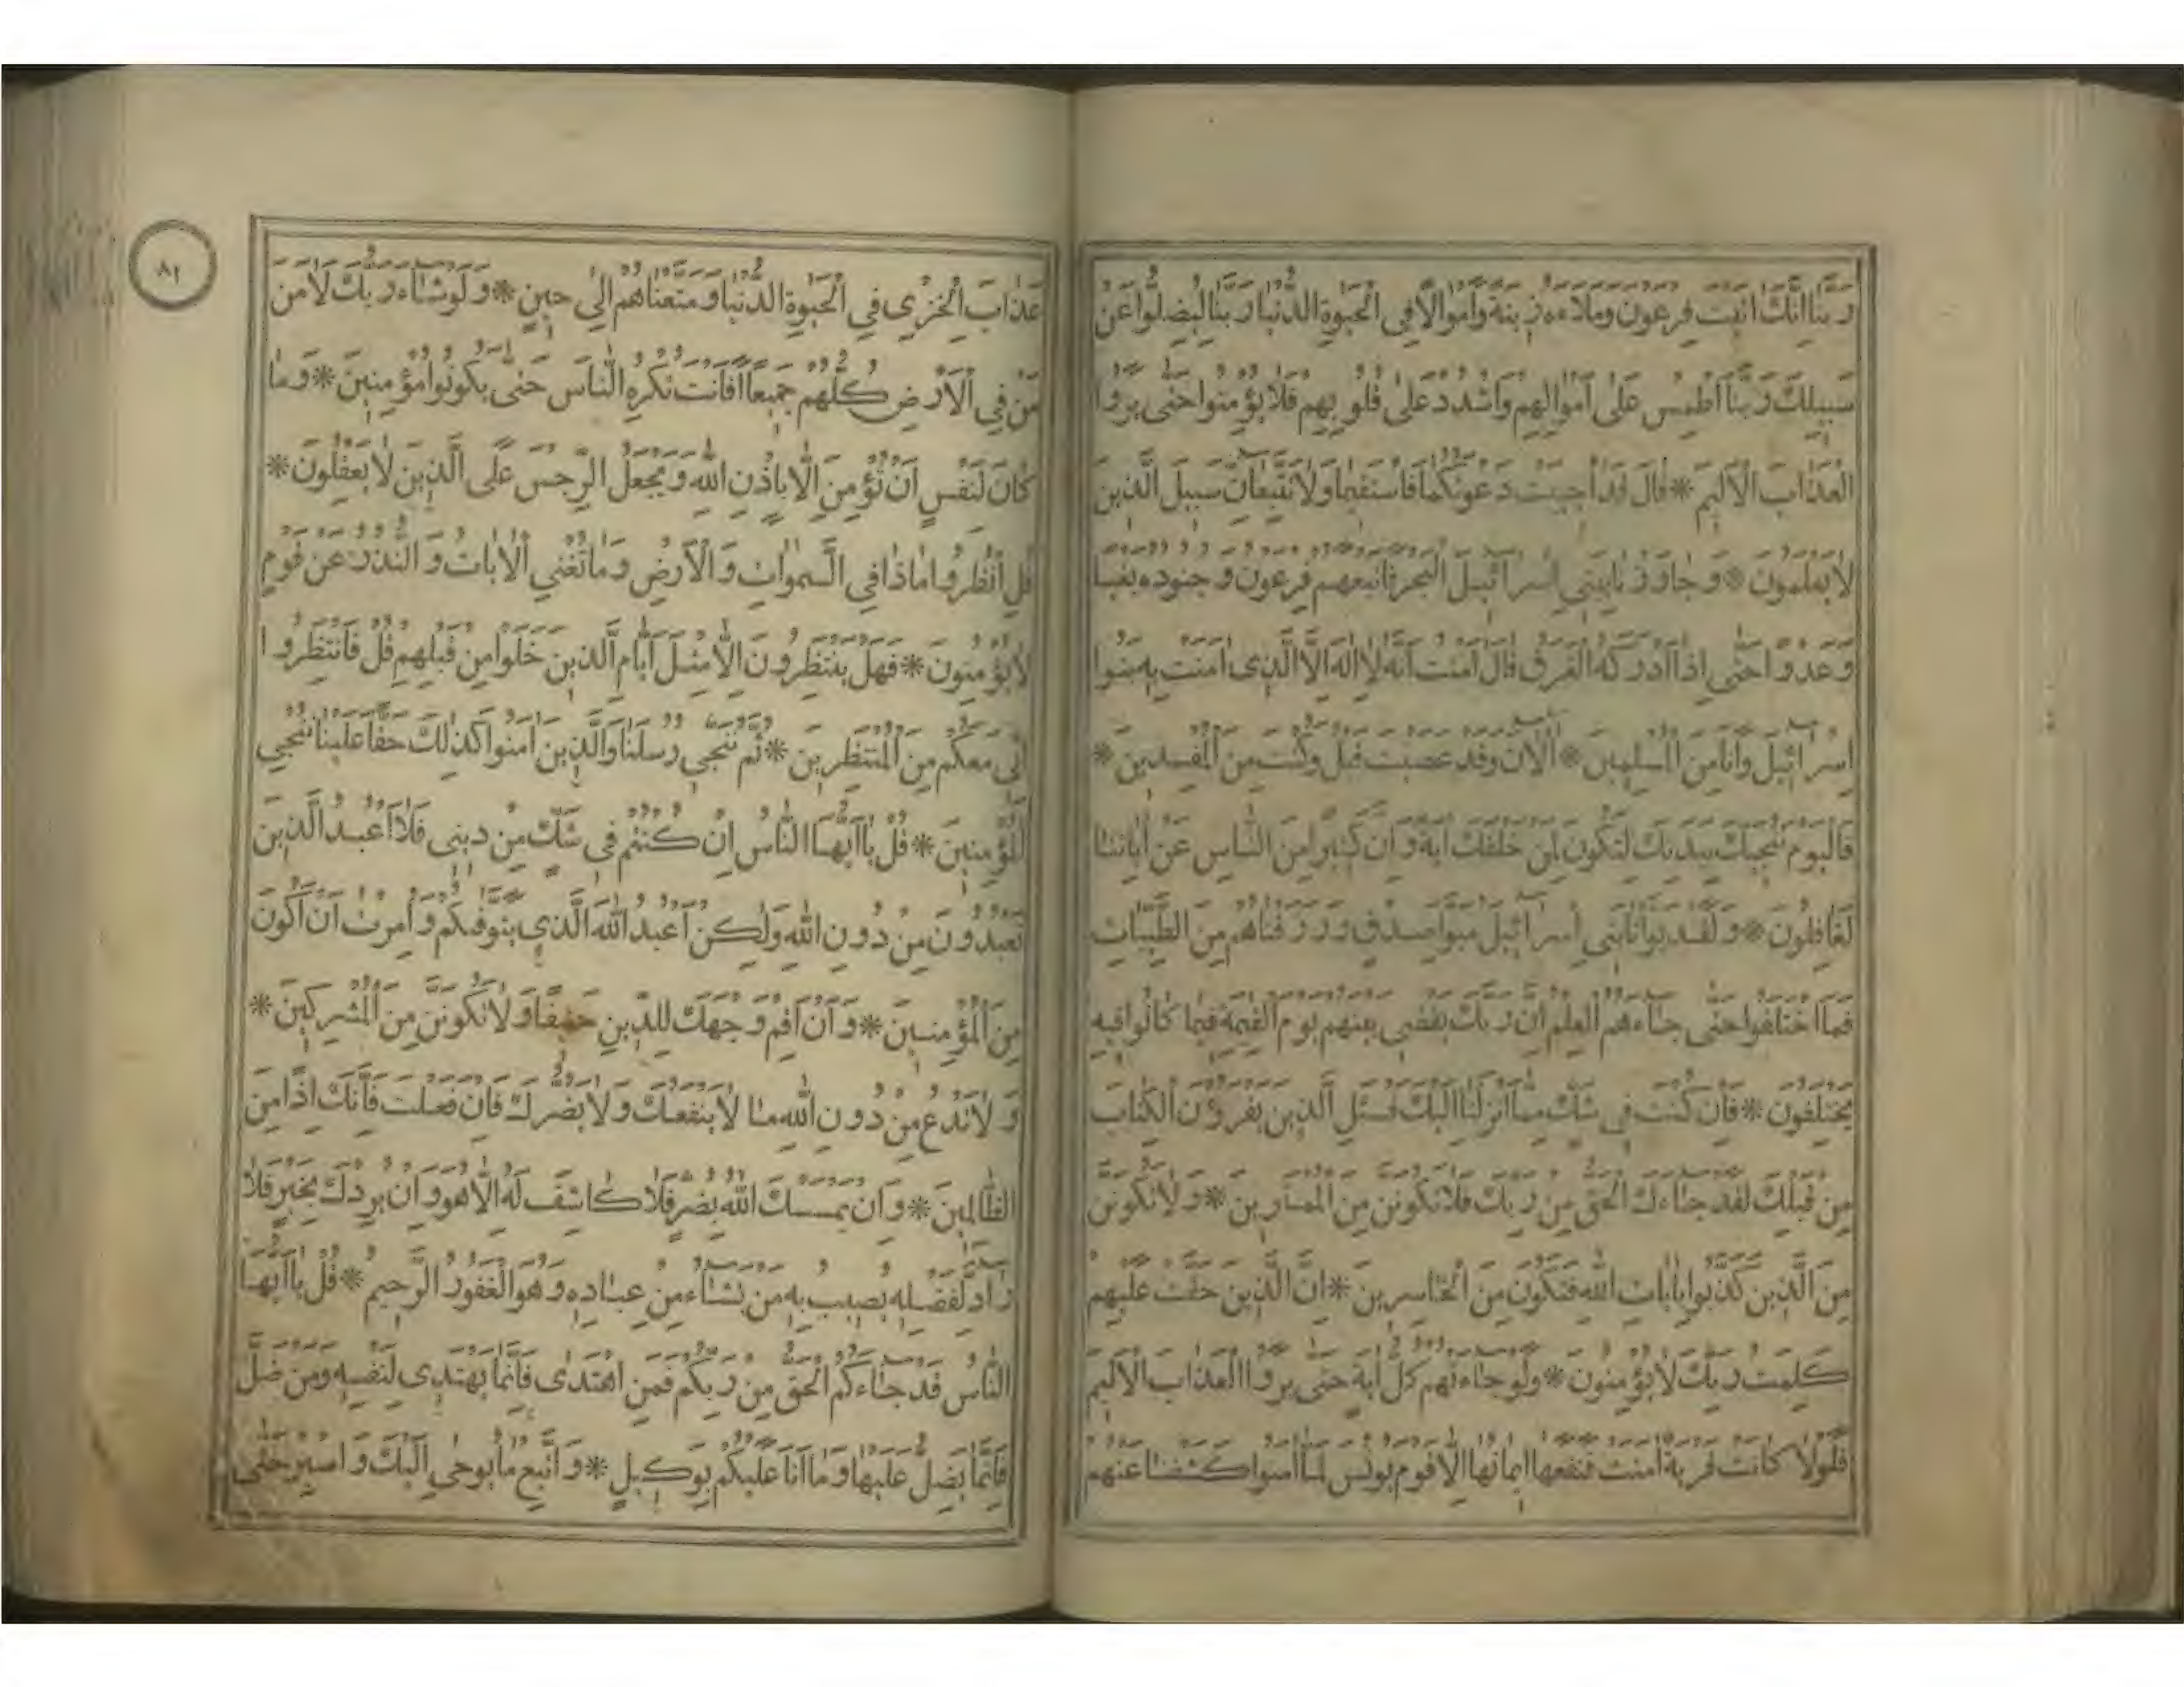 رَبَّنَا اِنَّكَ اٰتَيْتَ فِرْعَوْنَ وَمَلَاءَهُ زِينَةً وَاَمْوَالًا فِى الْحَيٰوةِ الدُّنْيَا رَبَّنَا لِيُضِلُّوا عَنْ
سَبِيلِكَ رَبَّنَا اطْمِسْ عَلٰى اَمْوَالِهِمْ وَاشْدُدْ عَلٰى قُلُوبِهِمْ فَلَا يُؤْمِنُوا حَتّٰى يَرَوُا
الْعَذَابَ الْاَلِيمَ * قَالَ قَدْ اُجِيبَتْ دَعْوَتُكُمَا فَاسْتَقِيمَا وَلَا تَتَّبِعَانِّ سَبِيلَ الَّذِينَ
لَا يَعْلَمُونَ * وَجَاوَزْنَا بِبَنِى اِسْرَائِيلَ الْبَحْرَ فَاَتْبَعَهُمْ فِرْعَوْنُ وَجُنُودُهُ بَغْيًا
وَعَدْوًا حَتّٰى اِذَا اَدْرَكَهُ الْغَرَقُ قَالَ اٰمَنْتُ اَنَّهُ لَا اِلٰهَ اِلَّا الَّذِى اٰمَنَتْ بِهِ بَنُوا
اِسْرَائِيلَ وَاَنَا مِنَ الْمُسْلِمِينَ * اٰلْاٰنَ وَقَدْ عَصَيْتَ قَبْلُ وَكُنْتَ مِنَ الْمُفْسِدِينَ *
فَالْيَوْمَ نُنَجِّيكَ بِبَدَنِكَ لِتَكُونَ لِمَنْ خَلْفَكَ اٰيَةً وَاِنَّ كَثِيرًا مِنَ النَّاسِ عَنْ اٰيَاتِنَا
لَغَافِلُونَ * وَلَقَدْ بَوَّاْنَا بَنِى اِسْرَائِيلَ مُبَوَّاَ صِدْقٍ وَرَزَقْنَاهُمْ مِنَ الطَّيِّبَاتِ
فَمَا اخْتَلَفُوا حَتّٰى جَاءَهُمُ الْعِلْمُ اِنَّ رَبَّكَ يَقْضِى بَيْنَهُمْ يَوْمَ الْقِيٰمَةِ فِيمَا كَانُوا فِيهِ
يَخْتَلِفُونَ * فَاِنْ كُنْتَ فِى شَكٍّ مِمَّا اَنْزَلْنَا اِلَيْكَ فَسْئَلِ الَّذِينَ يَقْرَؤُنَ الْكِتَابَ
مِنْ قَبْلِكَ لَقَدْ جَاءَكَ الْحَقُّ مِنْ رَبِّكَ فَلَا تَكُونَنَّ مِنَ الْمُمْتَرِينَ * وَلَا تَكُونَنَّ
مِنَ الَّذِينَ كَذَّبُوا بِاٰيَاتِ اللّٰهِ فَتَكُونَ مِنَ الْخَاسِرِينَ * اِنَّ الَّذِينَ حَقَّتْ عَلَيْهِمْ
كَلِمَتُ رَبِّكَ لَا يُؤْمِنُونَ * وَلَوْ جَاءَتْهُمْ كُلُّ اٰيَةٍ حَتّٰى يَرَوُا الْعَذَابَ الْاَلِيمَ
فَلَوْلَا كَانَتْ قَرْيَةٌ اٰمَنَتْ فَنَفَعَهَا اِيمَانُهَا اِلَّا قَوْمَ يُونُسَ لَمَّا اٰمَنُوا كَشَفْنَا عَنْهُمْ
٨١
عَذَابَ الْخِزْىِ فِى الْحَيٰوةِ الدُّنْيَا وَمَتَّعْنَاهُمْ اِلٰى حِينٍ * وَلَوْ شَاءَ رَبُّكَ لَاٰمَنَ
مَنْ فِى الْاَرْضِ كُلُّهُمْ جَمِيعًا اَفَاَنْتَ تُكْرِهُ النَّاسَ حَتّٰى يَكُونُوا مُؤْمِنِينَ * وَمَا
كَانَ لِنَفْسٍ اَنْ تُؤْمِنَ اِلَّا بِاِذْنِ اللّٰهِ وَيَجْعَلُ الرِّجْسَ عَلَى الَّذِينَ لَا يَعْقِلُونَ *
قُلِ انْظُرُوا مَاذَا فِى السَّمٰوَاتِ وَالْاَرْضِ وَمَا تُغْنِى الْاٰيَاتُ وَالنُّذُرُ عَنْ قَوْمٍ
لَا يُؤْمِنُونَ * فَهَلْ يَنْتَظِرُونَ اِلَّا مِثْلَ اَيَّامِ الَّذِينَ خَلَوْا مِنْ قَبْلِهِمْ قُلْ فَانْتَظِرُوا
اِنِّى مَعَكُمْ مِنَ الْمُنْتَظِرِينَ * ثُمَّ نُنَجِّى رُسُلَنَا وَالَّذِينَ اٰمَنُوا كَذٰلِكَ حَقًّا عَلَيْنَا نُنْجِى
الْمُؤْمِنِينَ * قُلْ يَا اَيُّهَا النَّاسُ اِنْ كُنْتُمْ فِى شَكٍّ مِنْ دِينِى فَلَا اَعْبُدُ الَّذِينَ
تَعْبُدُونَ مِنْ دُونِ اللّٰهِ وَلٰكِنْ اَعْبُدُ اللّٰهَ الَّذِى يَتَوَفّٰيكُمْ وَاُمِرْتُ اَنْ اَكُونَ
مِنَ الْمُؤْمِنِينَ * وَاَنْ اَقِمْ وَجْهَكَ لِلدِّينِ حَنِيفًا وَلَا تَكُونَنَّ مِنَ الْمُشْرِكِينَ *
وَلَا تَدْعُ مِنْ دُونِ اللّٰهِ مَا لَا يَنْفَعُكَ وَلَا يَضُرُّكَ فَاِنْ فَعَلْتَ فَاِنَّكَ اِذًا مِنَ
الظَّالِمِينَ * وَاِنْ يَمْسَسْكَ اللّٰهُ بِضُرٍّ فَلَا كَاشِفَ لَهُ اِلَّا هُوَ وَاِنْ يُرِدْكَ بِخَيْرٍ فَلَا
رَادَّ لِفَضْلِهِ يُصِيبُ بِهِ مَنْ يَشَاءُ مِنْ عِبَادِهِ وَهُوَ الْغَفُورُ الرَّحِيمُ * قُلْ يَا اَيُّهَا
النَّاسُ قَدْ جَاءَكُمُ الْحَقُّ مِنْ رَبِّكُمْ فَمَنِ اهْتَدٰى فَاِنَّمَا يَهْتَدِى لِنَفْسِهِ وَمَنْ ضَلَّ
فَاِنَّمَا يَضِلُّ عَلَيْهَا وَمَا اَنَا عَلَيْكُمْ بِوَكِيلٍ * وَاتَّبِعْ مَا يُوحٰى اِلَيْكَ وَاصْبِرْ حَتّٰى